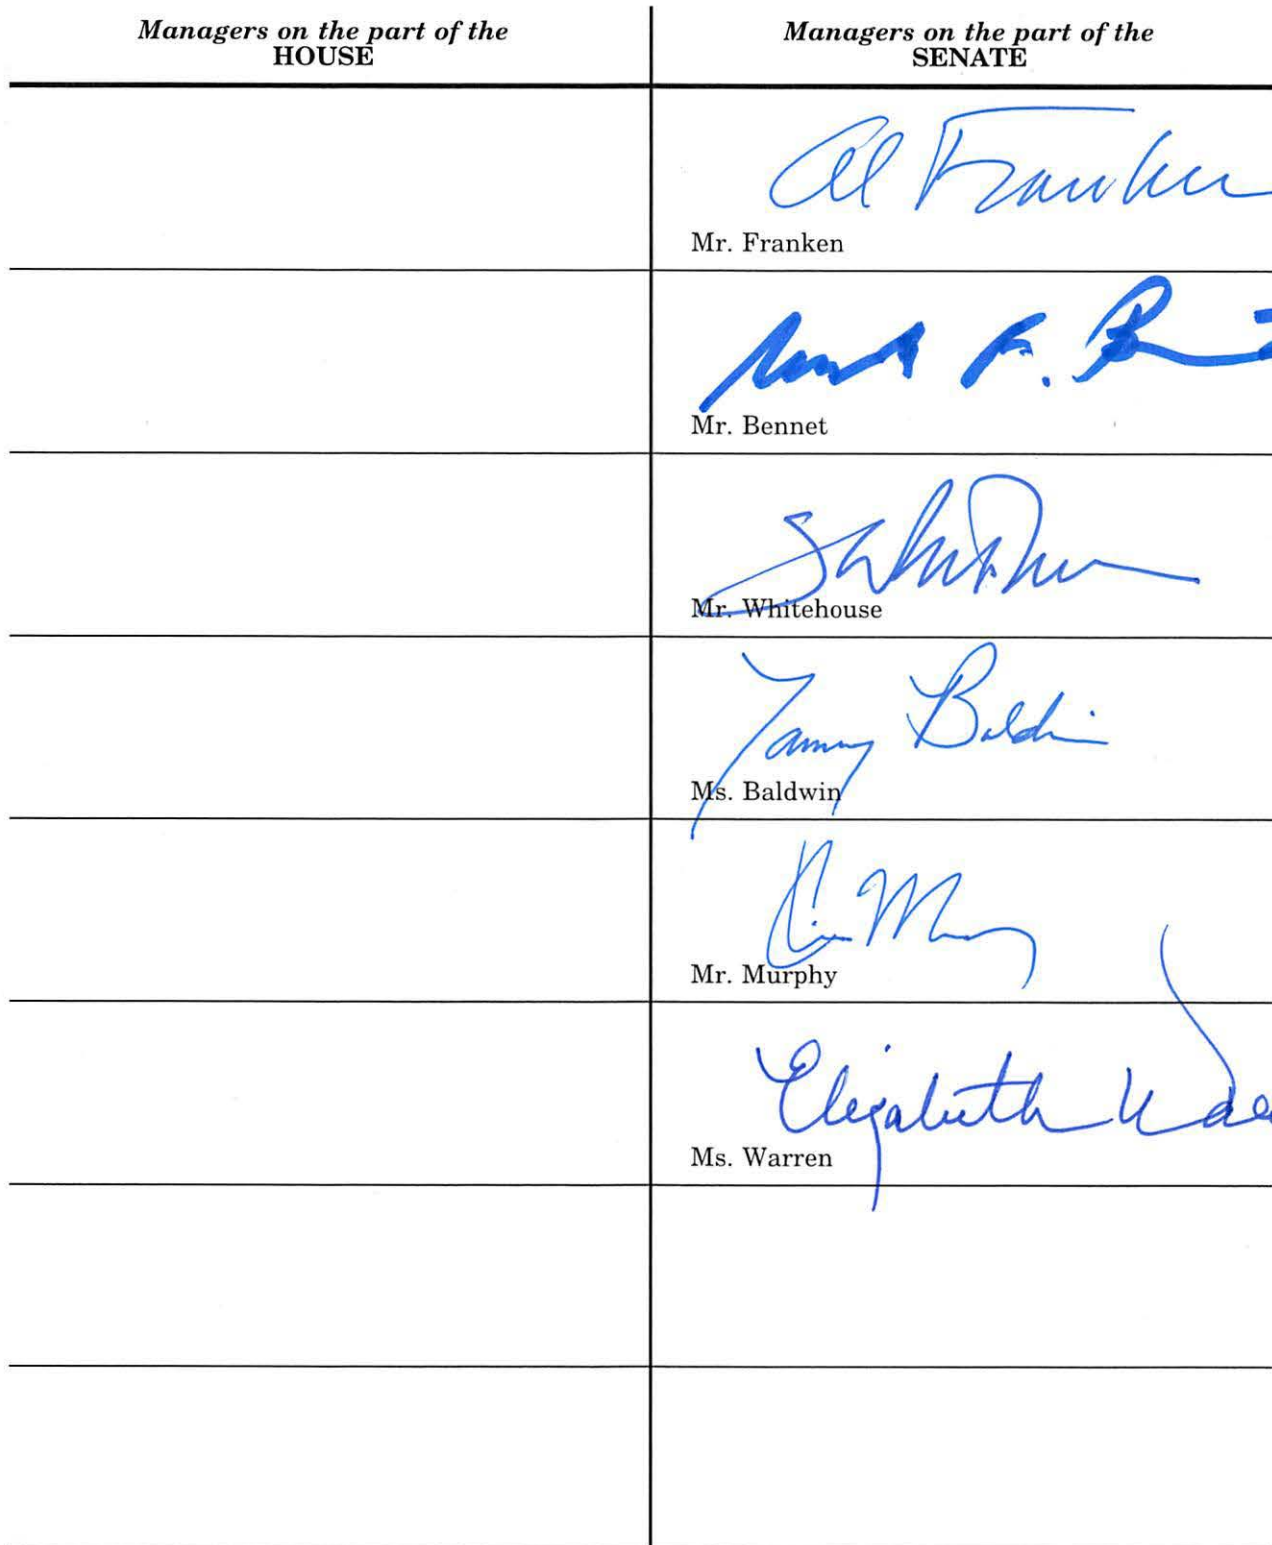 Managers on the part of the
HOUSE
Managers on the part of the
SENATE
Al Franken
Mr. Franken
Mr. Bennet
Mr. Whitehouse
Tammy Baldwin
Ms. Baldwin
Mr. Murphy
Elizabeth
Ms. Warren